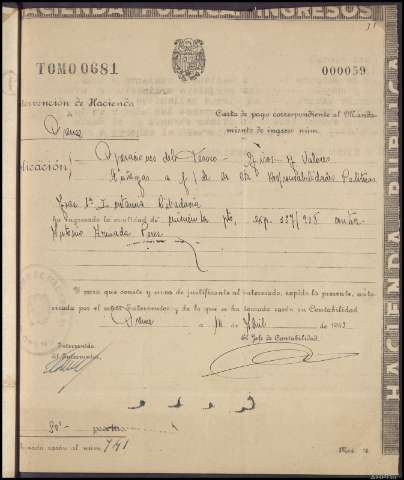 HACIENDA PUBLICA INGRESOS
31
TOMO 0681
000059
Intervención de Hacienda
de
Orense
Carta de pago correspondiente al Manda-
miento de ingreso núm.
plicación
Operaciones del Tesoro
Valores
Entregas a
Responsabilidades Políticas
Jose
ha ingresado la cantidad de cincuenta pts, exp. 337/938 contra
Antonio Perez
Y para que conste y sirva de justificante al interesado, expido la presente, auto-
rizada por el señor Interventor y de la que se ha tomado razón en Contabilidad.
Orense a 14 de Abril de 194
Intervenida
El Interventor,
El Jefe de Contabilidad,
50' pesetas
mado razón al núm. 741
Mod.
HACIENDA PUBLICA